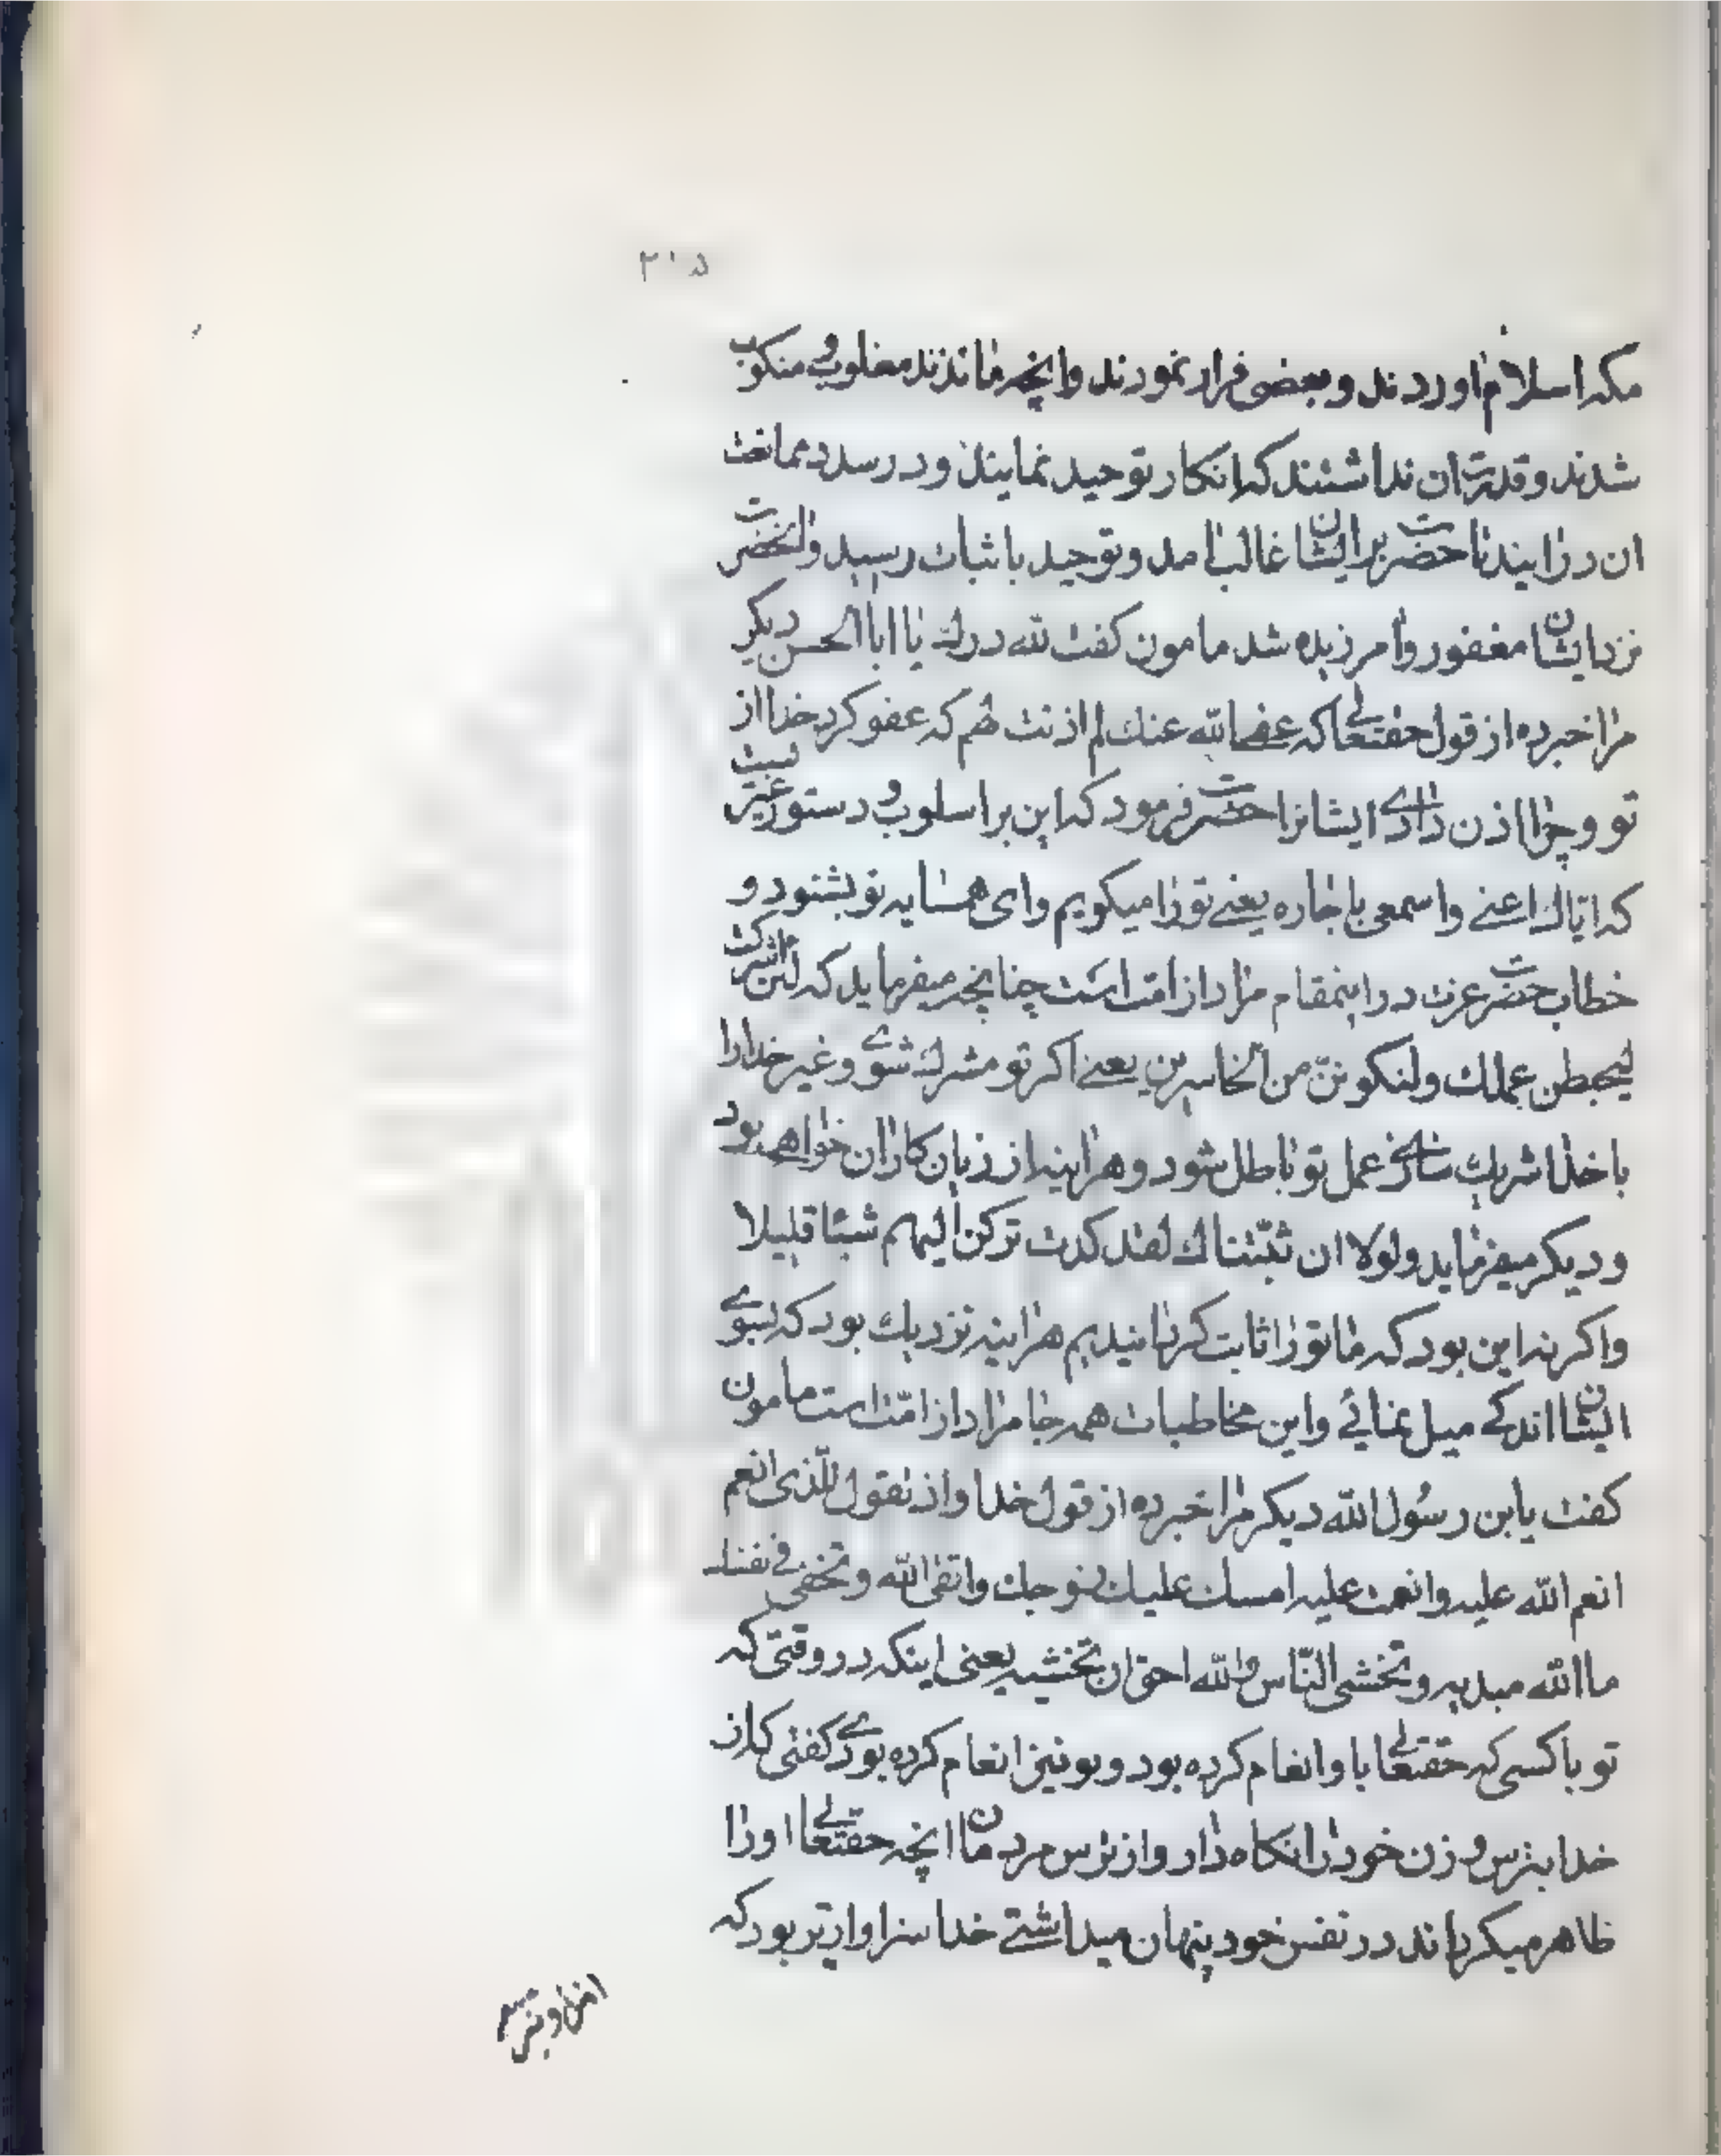 ۲۱۵
مکه اسلام اوردند و بعضی فرار نمودند وانچه ماندند مغلوب و منکوب
شدند و قدرت ان نداشتند که انکار توحید نمایند و در رسدد ممانعت
ان درایند تا حضرت بر ایشان غالب امد و توحید باثبات رسید والحضرت
نزد ایشان مغفور وامرزیده شد مامون کفت لله درك یا ابا الحسن دیکر
مرا خبرده از قول حقتعالی که عفی الله عنك لم اذنت لهم که عفو کرد خدا از
تو و چرا اذن دادی ایشانرا حضرت فرمود که این بر اسلوب و دستور
که ایاك اعنے واسمعی یا جاره یعنے تو را میکویم وای همسایه تو بشنود و
خطاب حضرت عزت در اینمقام مراد از امت است چنانچه میفرماید که لئن اشرکت
لیحبطن عملك ولتکوننّ من الخاسرین یعنے اکر تو مشرك شوی و غیر خدا را
با خدا شریك سازی عمل تو باطل شود و هراینه از زیان کاران خواهی بود
و دیکر میفرماید ولولا ان ثبّتناك لقد کدت ترکن الیهم شیئا قلیلا
واکر نه این بود که ما تو را ثابت کردانیدیم هراینه نزدیك بود که بسوی
ایشان اندکے میل نمائے واین مخاطبات همه جا مراد از امّت است مامون
کفت یابن رسول الله دیکر مرا خبرده از قول خدا واذ تقول للّذی انعم
انعم الله علیه وانعمت علیه امسك علیك زوجك واتقی الله وتخفی فی نفسك
ما الله مبدیه وتخشی النّاس والله احق ان تخشیه یعنی اینکه در وقتی که
تو با کسی که حقتعالی باو انعام کرده بود و تو نیز انعام کرده بودی کفتی که از
خدا بترس و زن خود را نکاه دار واز ترس مردمان انچه حقتعالی اورا
ظاهر میکرداند در نفس خود پنهان میداشتے خدا سزاوارتر بود که
از او بترسی